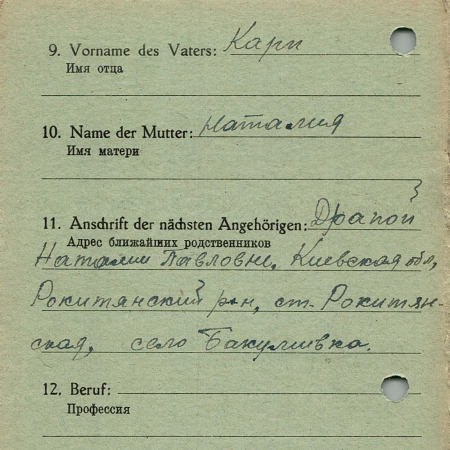 9. Vorname des Vaters: Карп
Имя отца
10. Name der Mutter: Наталия
Имя матери
11. Anschrift der nächsten Angehörigen: Драпой
Адрес ближайших родственников
Наталии Павловне, Киевская обл,
Рокитянский р-н, ст. Рокитян-
ская, село Бакумивка.
12. Beruf:
Профессия